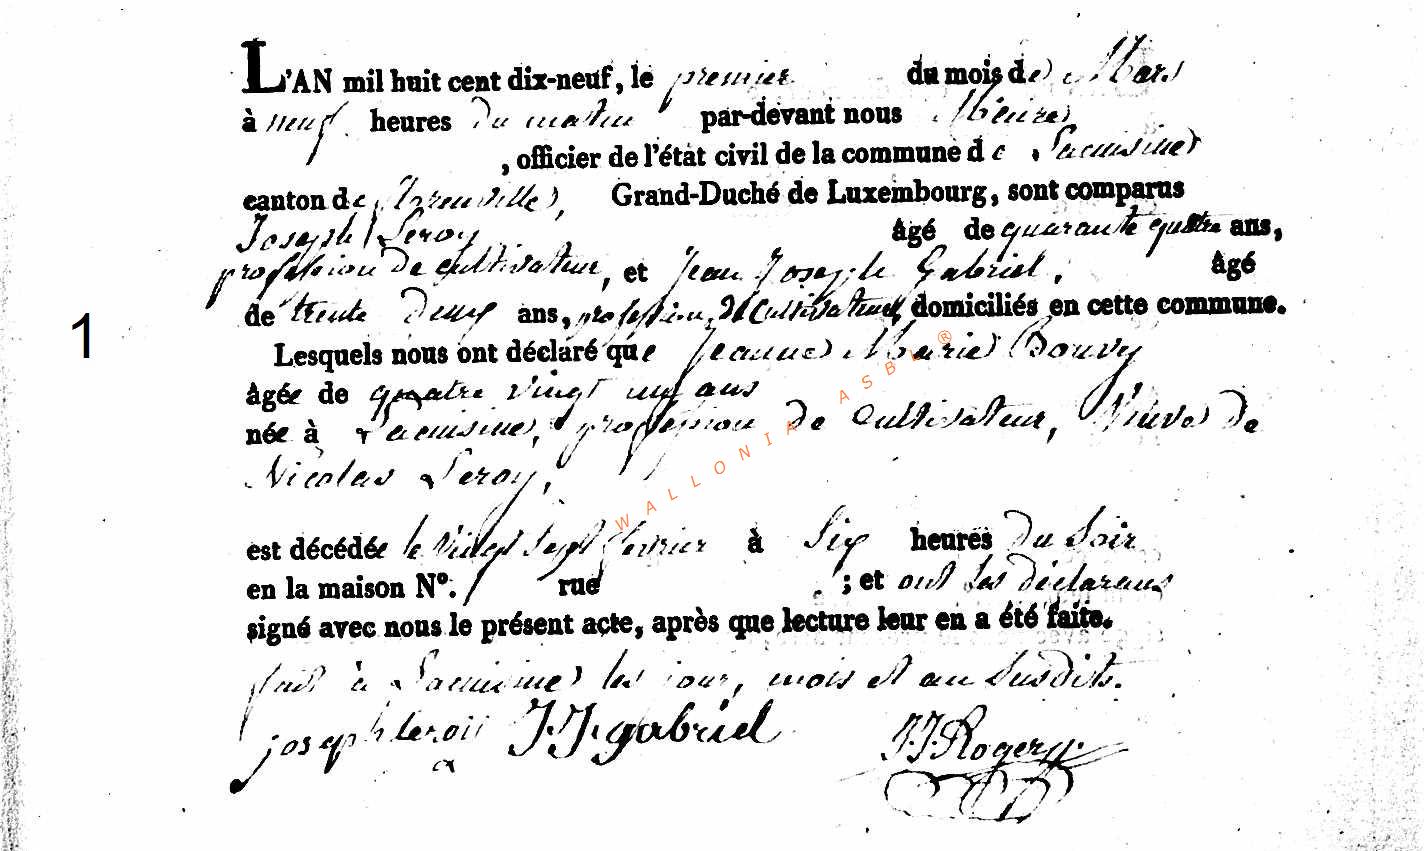 L'AN mil huit cent dix-neuf, le premier du mois de Mars
à neuf heures du matin par-devant nous
, officier de l'état civil de la commune de Lacuisine
canton de florenville, Grand-Duché de Luxembourg, sont comparus
Joseph Leroy âgé de quarante quatre ans,
profession de cultivateur, et Jean Joseph Gabriel, âgé
de trente deux ans, profession de Cultivateur, domiciliés en cette commune.
1
Lesquels nous ont déclaré que Jeanne Marie Bouvy
âgée de quatre vingt un ans
née à Lacuisine, profession de Cultivateur, Veuve de
Nicolas Leroy,
WALLONIA ASBL ®
est décédée le Vingt Sept fevrier à Six heures du Soir
en la maison N°. 1 rue ; et ont les déclarans
signé avec nous le présent acte, après que lecture leur en a été faite.
fait à Lacuisine les jour, mois et an Susdits.
joseph leroii J.J. gabriel J.J. Roger